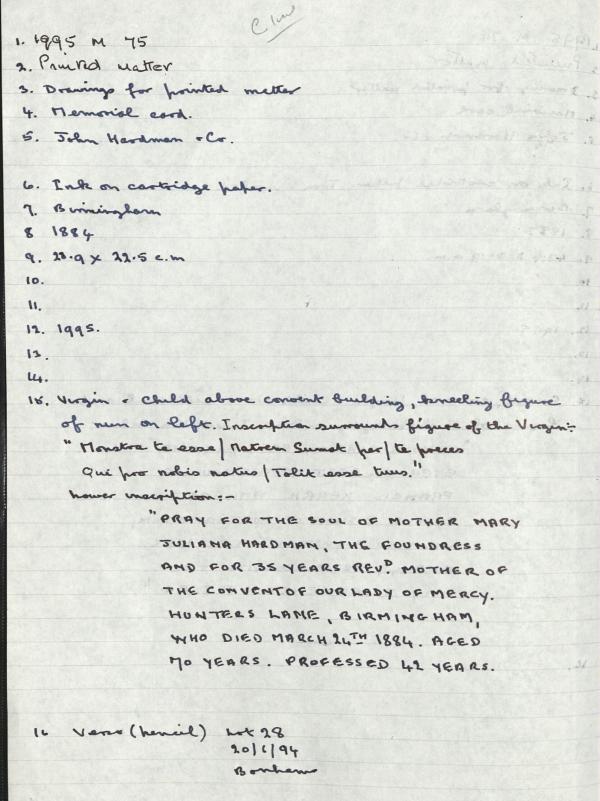 1. 1995 M 75
2. Printed matter
3. Drawings for printed matter
4. Memorial card.
5. John Hardman & Co.
6. Ink on cartridge paper.
7. Birmingham
8 1884
9. 28.9 x 22.5 c.m
10.
11.
12. 1995.
13.
14.
15. Virgin & Child above convent building, kneeling figure
of nun on left. Inscription surrounds figure of the Virgin:-
"Monstra te esse/Matrem Sumat per/te preces
Qui pro nobis natus/Tolit esse tuus."
Lower inscription:-
"PRAY FOR THE SOUL OF MOTHER MARY
JULIANA HARDMAN, THE FOUNDRESS
AND FOR 35 YEARS REVD. MOTHER OF
THE CONVENT OF OUR LADY OF MERCY.
HUNTERS LANE, BIRMINGHAM,
WHO DIED MARCH 24TH 1884. AGED
70 YEARS. PROFESSED 42 YEARS.
16 Verso (pencil) Lot 28
20/1/94
Bonhams